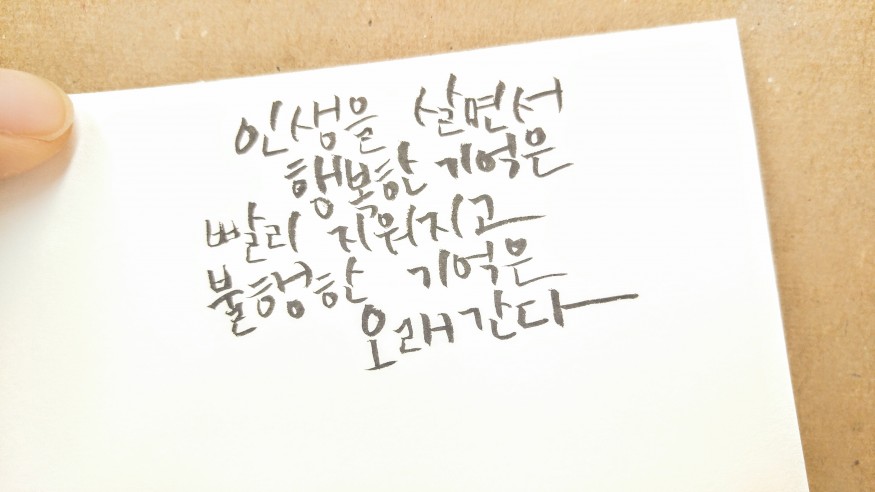 인생을 살면서
행복한 기억은
빨리 지워지고
불행한 기억은
오래간다